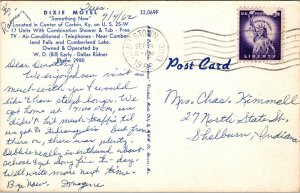 Tues.
9/4/62
DIXIE MOTEL
"Something New"
Located in Center of Corbin, Ky. on U. S. 25-W
17 Units With Combination Shower & Tub - Free
TV - Air-Conditioned - Telephone - Near Cumber-
land Falls and Cumberland Lake.
Owned & Operated by
W. D. (Bill) Early - Dallas Ridner
Phone 2980
33,069F
Dear Dorothy:
We enjoyed our visit so
much with you & would
like to have stayed longer. We
got home at 9:00 P.M., we
didn't hit much traffic til
we got to Indianapolis but from
there on, there was plenty.
Debbie really is enthused about
school & got along fine to-day.
Will write more next time.
Bye Now. Imogene
Post Card
LIBERTY
Mrs. Chas. Kimmell
27 North State St.
Shelburn, Indiana